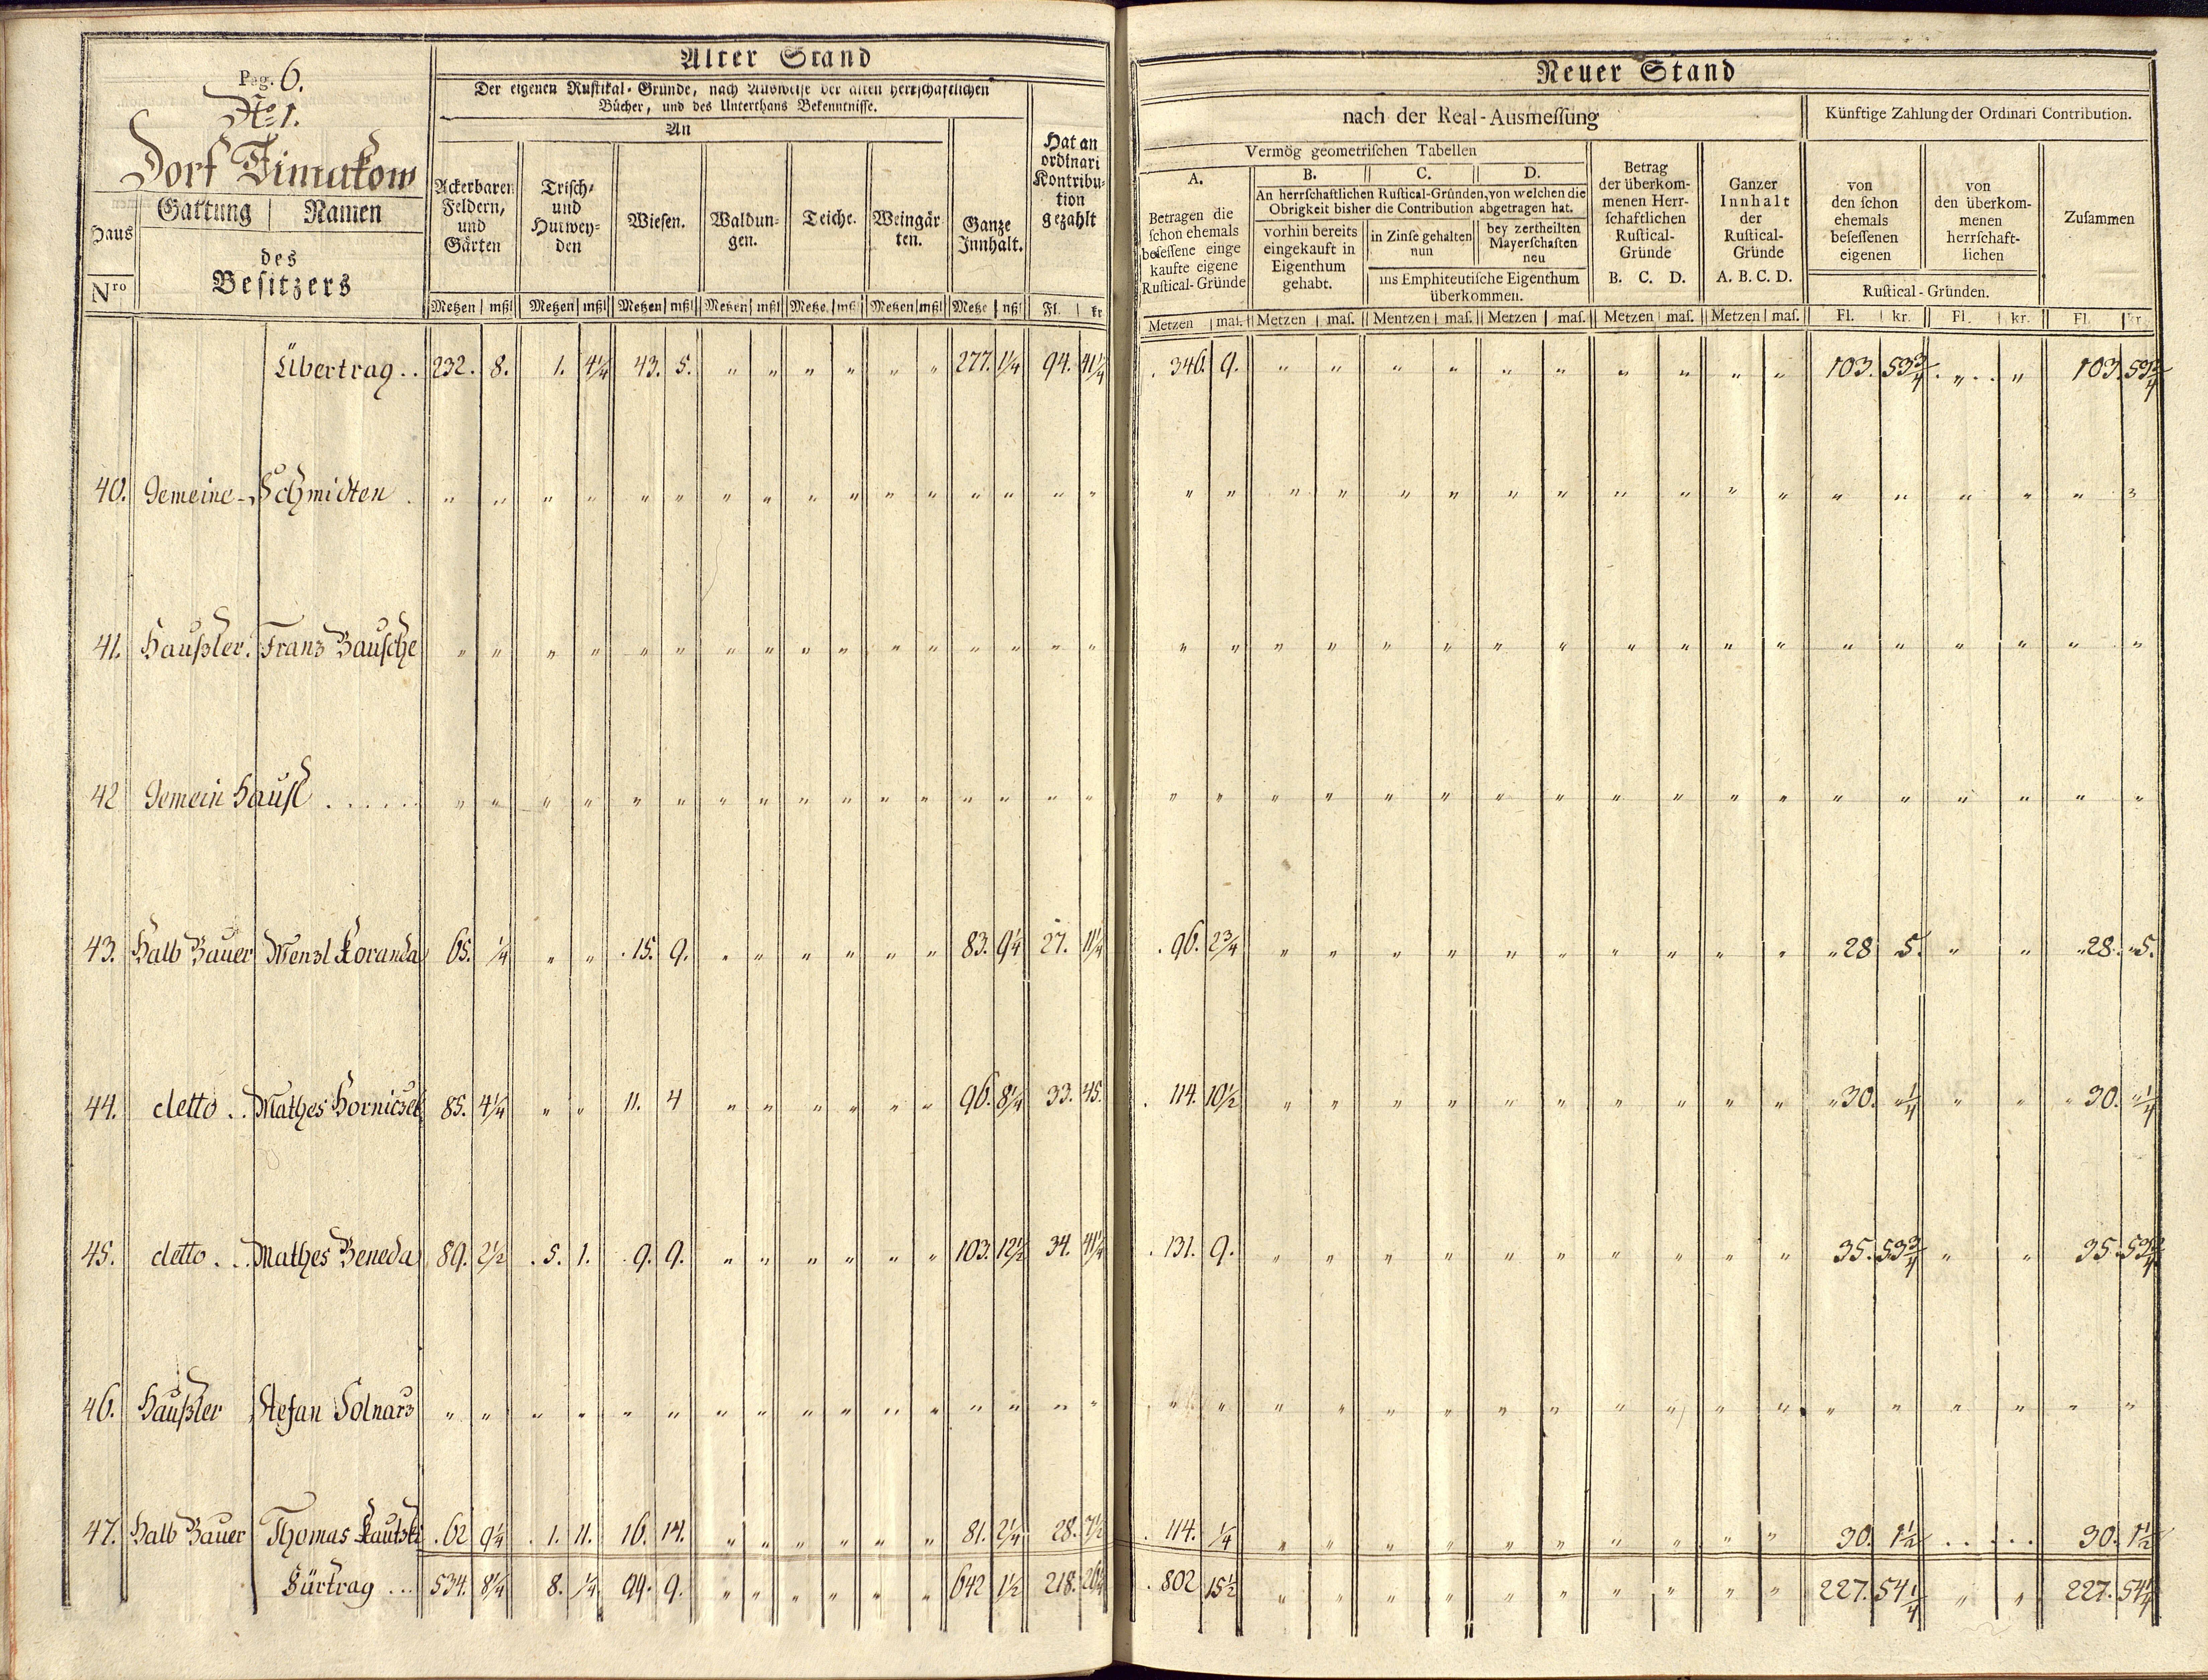 Pag. 6.
No 1.
Dorf Timakow
Haus Nro
Gattung | Namen
des
Besitzers
Alter Stand
Der eigenen Rustikal-Gründe, nach Ausweise der alten herrschaftlichen
Bücher, und des Unterthans Bekenntnisse.
An
Ackerbaren Feldern, und Gärten
Trisch- und Hutweyden
Wiesen.
Waldungen.
Teiche.
Weingärten.
Ganze Innhalt.
Hat an ordinari Kontribution gezahlt
Metzen | mßl Metzen | mßl Metzen | mßl Metzen | mßl Metze | mßl Metzen | mßl Metze | mßl Fl. | kr
Neuer Stand
nach der Real-Ausmessung
Künftige Zahlung der Ordinari Contribution.
Vermög geometrischen Tabellen
A.
Betragen die
schon ehemals
besessene einge
kaufte eigene
Rustical-Gründe
B. C. D.
An herrschaftlichen Rustical-Gründen, von welchen die
Obrigkeit bisher die Contribution abgetragen hat.
vorhin bereits
eingekauft in
Eigenthum
gehabt.
in Zinse gehalten
nun
bey zertheilten
Mayerschaften
neu
ins Emphiteutische Eigenthum
überkommen.
Betrag
der überkom-
menen Herr-
schaftlichen
Rustical-
Gründe
B. C. D.
Ganzer
Innhalt
der
Rustical-
Gründe
A. B. C. D.
von
den schon
ehemals
besessenen
eigenen
von
den überkom-
menen
herrschaft-
lichen
Rustical-Gründen.
Zusammen
Metzen | mas. Metzen | mas. Mentzen | mas. Metzen | mas. Metzen | mas. Metzen | mas. Fl. | kr. Fl. | kr. Fl. | kr.
Übertrag . . 232. 8. 1. 4¼ 43. 5. " " " " " " 277. 1¼ 94. 41¼ 346. 9. " " " " " " " " " " 103. 53¾ " " 103. 53¾
40. Gemeine-Schmidten . " " " " " " " " " " " " " " " " " " " " " " " " " " " " " " " " " "
41. Haußler. Franz Bausche " " " " " " " " " " " " " " " " " " " " " " " " " " " " " " " " " "
42 Gemein Hausl . . . . . " " " " " " " " " " " " " " " " " " " " " " " " " " " " " " " " " "
43. Halb Bauer Wenzl Koranda 65. ¼ " " 15. 9. " " " " " " 83. 9¼ 27. 11¼ 96. 2¾ " " " " " " " " " " 28 5. " " 28. 5.
44. detto . . Mathes Horniczek 85. 4¼ " " 11. 4 " " " " " " 96. 8¼ 33. 45. 114. 10½ " " " " " " " " " " 30. " ¼ " " 30. " ¼
45. detto . . Mathes Beneda 89. 2½ 5. 1. 9. 9. " " " " " " 103. 12½ 34. 41¼ 131. 9. " " " " " " " " " " 35. 53¾ " " 35. 53¾
46. Haußler Stefan Solnarz " " " " " " " " " " " " " " " " " " " " " " " " " " " " " " " " " "
47. Halb Bauer Thomas Kautski 62 9¼ 1. 11. 16. 14. " " " " " " 81. 2¼ 28. 7½ 114. ¼ " " " " " " " " " " 30. 1½ . . . . . 30. 1½
Fürtrag . . . 534. 8¼ 8. ¼ 99. 9. " " " " " " 642 1½ 218. 26¼ 802 15½ " " " " " " " " " " 227. 54¼ " " 227. 54¼